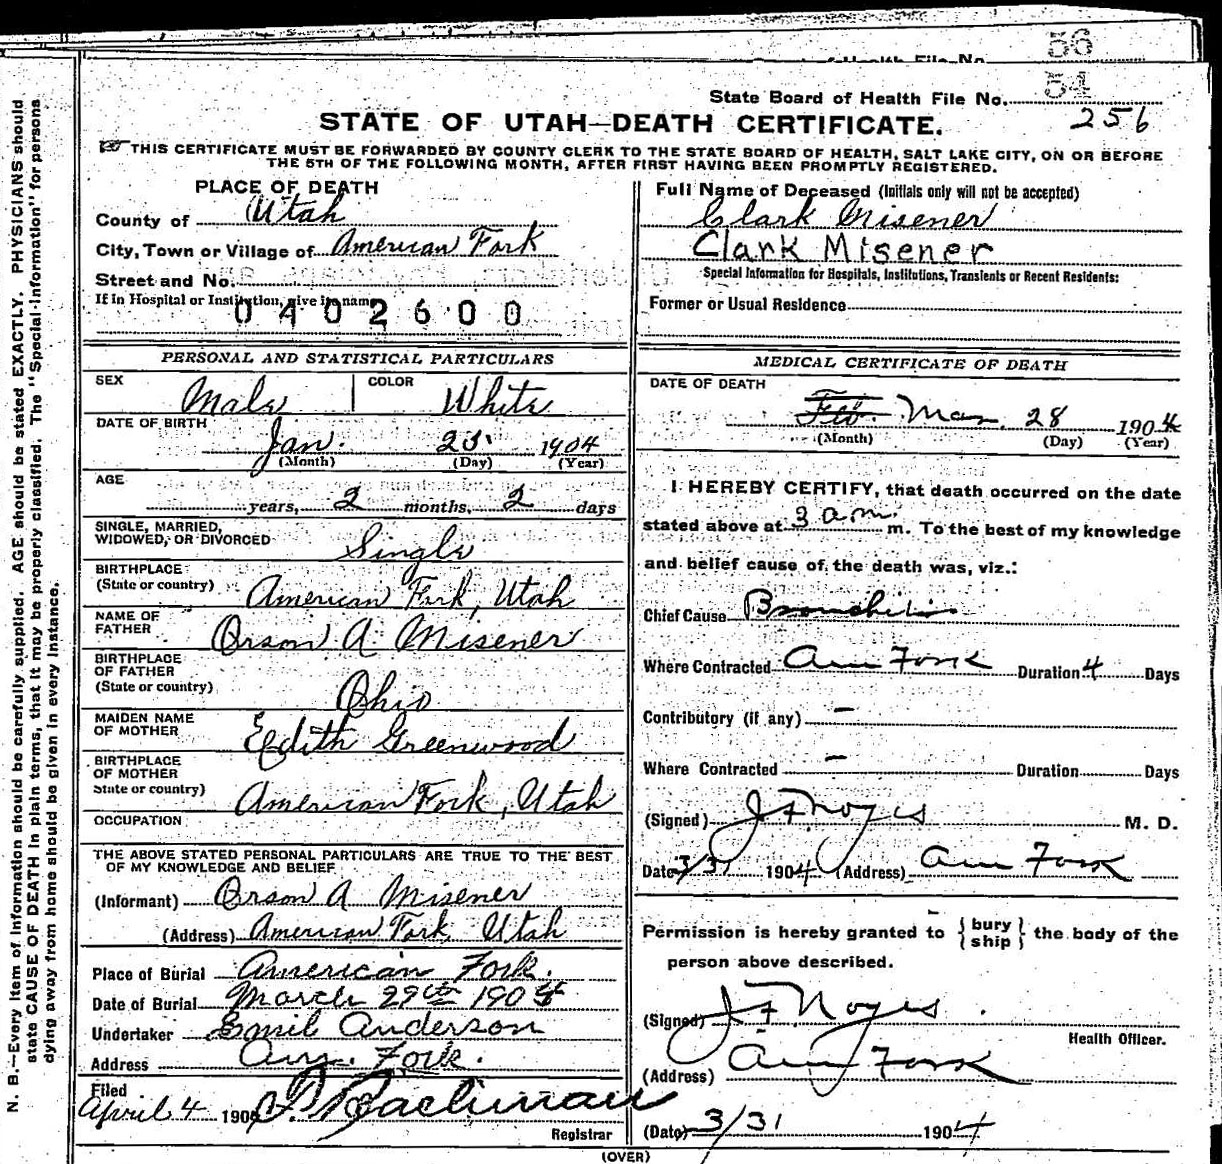 56
54
State Board of Health File No.
256
STATE OF UTAH—DEATH CERTIFICATE.
THIS CERTIFICATE MUST BE FORWARDED BY COUNTY CLERK TO THE STATE BOARD OF HEALTH, SALT LAKE CITY, ON OR BEFORE
THE 5TH OF THE FOLLOWING MONTH, AFTER FIRST HAVING BEEN PROMPTLY REGISTERED.
PLACE OF DEATH
County of Utah
City, Town or Village of American Fork
Street and No.
If in Hospital or Institution, give its name
0402600
Full Name of Deceased (Initials only will not be accepted)
Clark Misener
Clark Misener
Special Information for Hospitals, Institutions, Transients or Recent Residents:
Former or Usual Residence
PERSONAL AND STATISTICAL PARTICULARS
SEX Male COLOR White
DATE OF BIRTH
Jan. 25 1904
(Month) (Day) (Year)
AGE
years, 2 months, 2 days
SINGLE, MARRIED,
WIDOWED, OR DIVORCED Single
BIRTHPLACE
(State or country) American Fork, Utah
NAME OF
FATHER Orson A. Misener
BIRTHPLACE
OF FATHER
(State or country) Ohio
MAIDEN NAME
OF MOTHER Edith Greenwood
BIRTHPLACE
OF MOTHER
State or country) American Fork, Utah
OCCUPATION
THE ABOVE STATED PERSONAL PARTICULARS ARE TRUE TO THE BEST
OF MY KNOWLEDGE AND BELIEF
(Informant) Orson A Misener
(Address) American Fork, Utah
Place of Burial American Fork.
Date of Burial March 29th 1904
Undertaker Emil Anderson
Address Am. Fork.
Filed
April 4 190
Registrar
MEDICAL CERTIFICATE OF DEATH
DATE OF DEATH
Feb. Mar. 28 1904
(Month) (Day) (Year)
I HEREBY CERTIFY, that death occurred on the date
stated above at 3 a.m. m. To the best of my knowledge
and belief cause of the death was, viz.:
Chief Cause Bronchitis
Where Contracted Am Fork Duration 4 Days
Contributory (if any) -
Where Contracted - Duration Days
(Signed) J F Noyes M. D.
Date 3/31 1904 (Address) Am Fork
Permission is hereby granted to {bury
ship} the body of the
person above described.
(Signed) J F Noyes
Health Officer.
(Address) Am Fork
(Date) 3/31 1904
(OVER)
N. B.—Every item of information should be carefully supplied. AGE should be stated EXACTLY. PHYSICIANS should
state CAUSE OF DEATH in plain terms, that it may be properly classified. The "Special Information" for persons
dying away from home should be given in every instance.